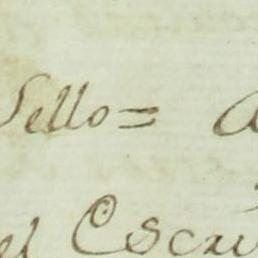 Sello =
el Escri